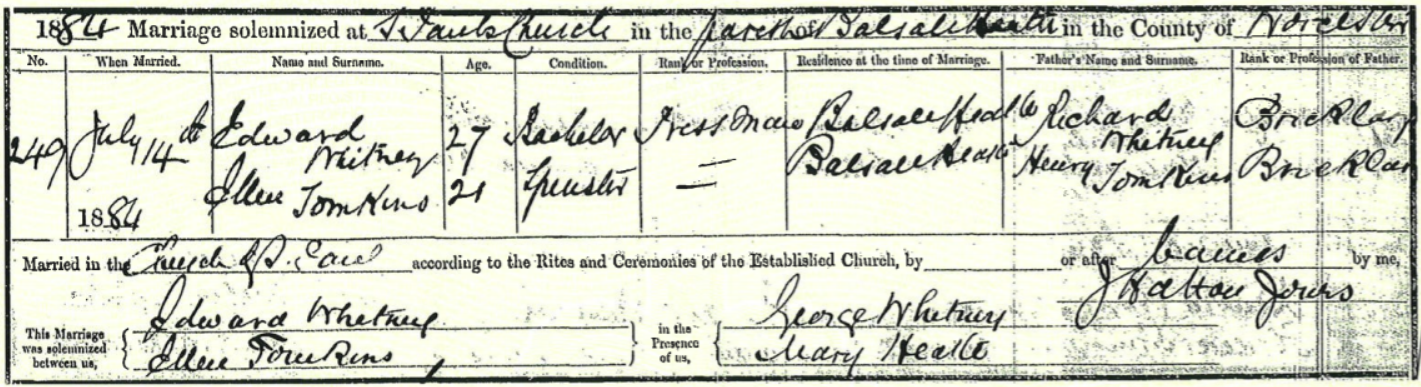 1884 Marriage solemnized at S. Paul's Church in the parish of Balsall Heath in the County of Worcester
No. When Married. Name and Surname. Age. Condition. Rank or Profession. Residence at the time of Marriage. Father's Name and Surname. Rank or Profession of Father.
249 July 14th 1884 Edward Whitney 27 Bachelor Press man Balsall Heath Richard Whitney Bricklayer
Ellen Tomkins 21 Spinster — Balsall Heath Henry Tomkins Bricklayer
Married in the Church of S. Paul according to the Rites and Ceremonies of the Established Church, by or after Banns by me,
J Halton Jones
This Marriage was solemnized between us, Edward Whitney in the Presence of us, George Whitney
Ellen Tomkins Mary Heath